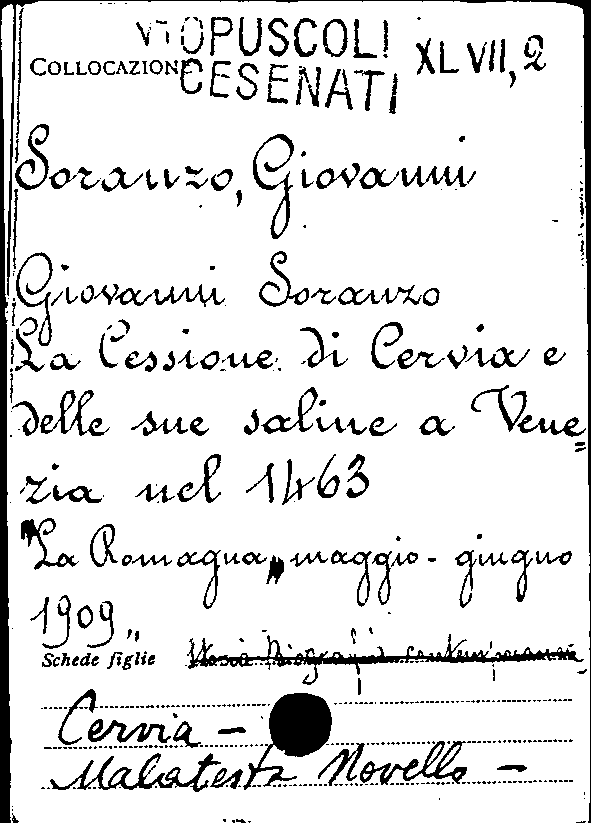 OPUSCOLI
COLLOCAZIONE CESENATI XLVII, 2
Soranzo, Giovanni
Giovanni Soranzo
La Cessione di Cervia e
delle sue saline a Vene=
zia nel 1463
"La Romagna„ maggio - giugno
1909„
Schede figlie
Cervia -
Malatesta Novello -